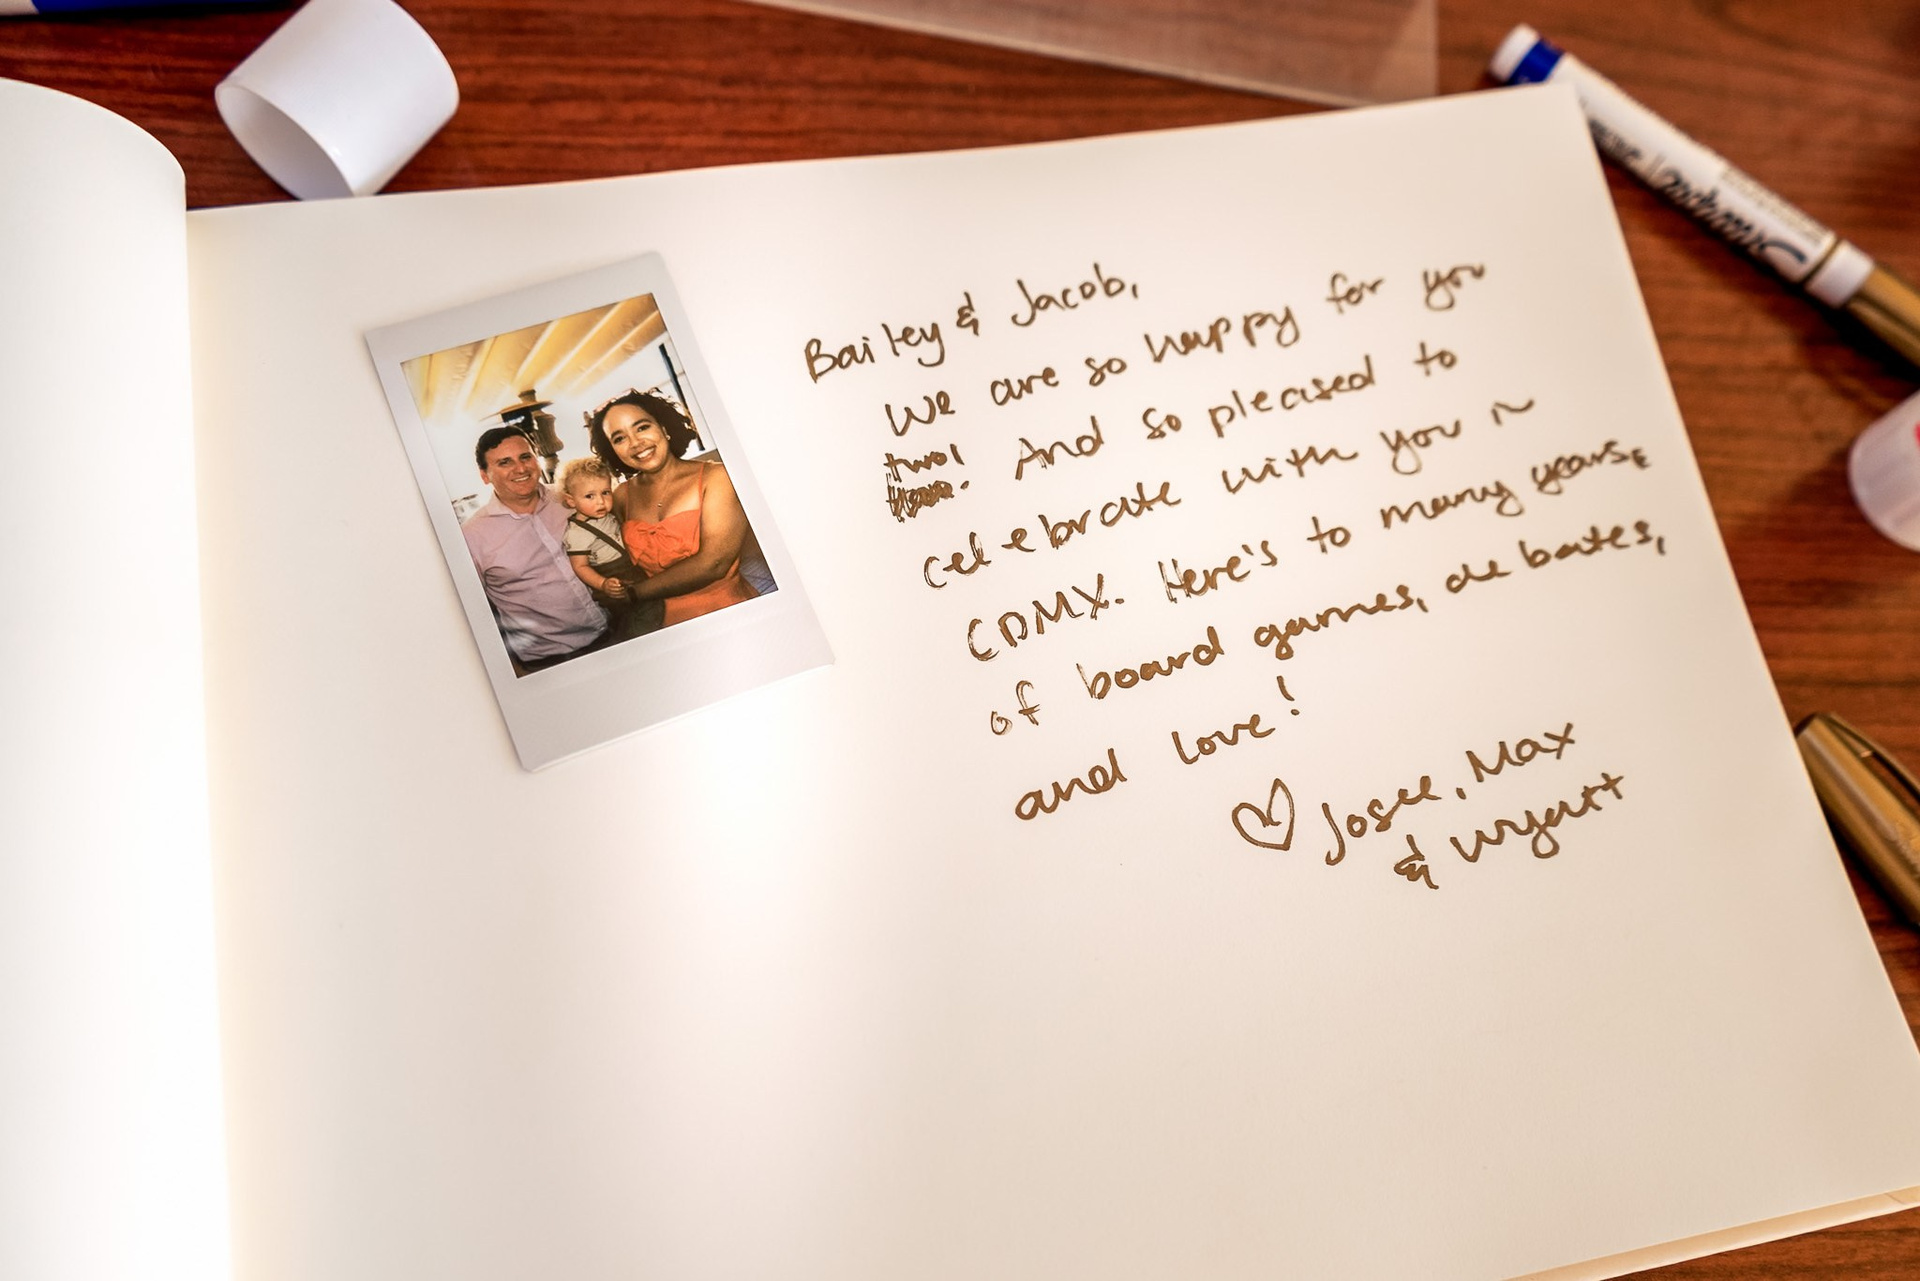 Bailey & Jacob,
We are so happy for you
two! And so pleased to
celebrate with you in
CDMX. Here's to many years
of board games, debates,
and love!
♡ Josee, Max
& Wyatt